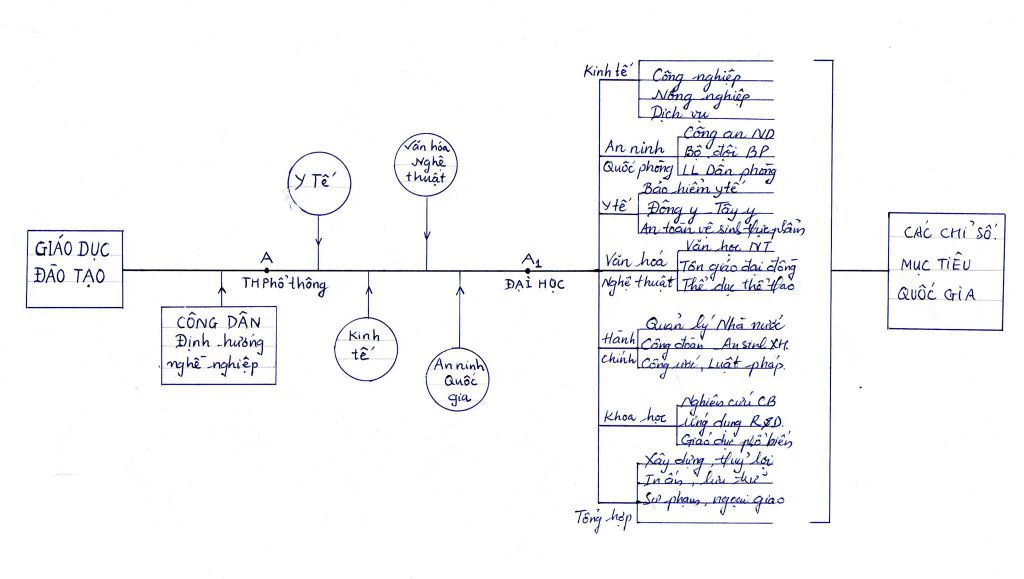 GIÁO DỤC
ĐÀO TẠO
CÔNG DÂN
Định hướng
nghề nghiệp
A
TH Phổ thông
Y Tế
Kinh
tế
Văn hóa
Nghệ
thuật
An ninh
Quốc
gia
A1
ĐẠI HỌC
Kinh tế
Công nghiệp
Nông nghiệp
Dịch vụ
An ninh
Quốc phòng
Công an ND
Bộ đội BP
LL Dân phòng
Y tế
Bảo hiểm y tế
Đông y - Tây y
An toàn vệ sinh thực phẩm
Văn hoá
Nghệ thuật
Văn học NT
Tôn giáo đại đồng
Thể dục thể thao
Hành
chính
Quản lý Nhà nước
Công đoàn - An sinh XH.
Công ước, Luật pháp.
Khoa học
Nghiên cứu CB
Ứng dụng R&D.
Giáo dục phổ biến
Tổng hợp
Xây dựng, thuỷ lợi
In ấn, lưu thư
Sư phạm, ngoại giao
CÁC CHỈ SỐ.
MỤC TIÊU
QUỐC GIA